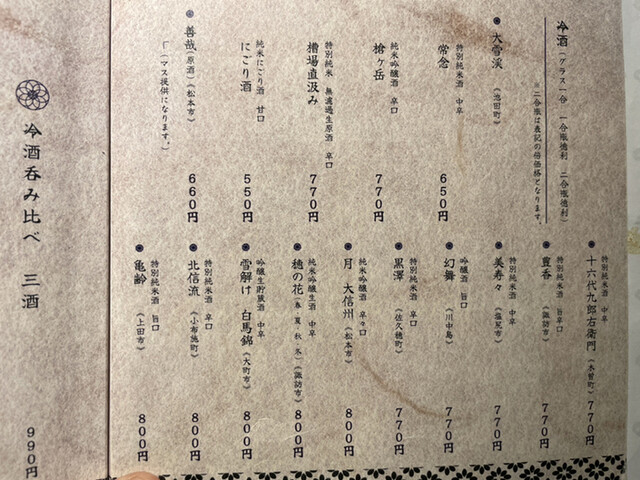 冷酒(グラス一合 一合徳利 二合徳利)
※二合徳は表記の倍価格となります。
大雪渓 (池田町)
特別純米酒 中辛
常念 650円
純米吟醸酒 辛口
槍ヶ岳 770円
特別純米 無濾過生原酒 辛口
槽場直汲み 770円
純米にごり酒 甘口
にごり酒 550円
善哉(原酒)(松本市) 660円
「(マス提供になります。)
特別純米酒 中辛
十六代九郎右衛門 (木曽町) 770円
特別純米酒 旨辛口
豊香 (諏訪市) 770円
特別純米酒 中辛
美寿々 (塩尻市) 770円
吟醸酒 旨口
幻舞 (川中島) 770円
特別純米酒 辛口
黒澤 (佐久穂町) 770円
純米吟醸酒 辛々口
月 大信州 (松本市) 800円
純米吟醸生酒 中辛
穂の花(春・夏・秋・冬)(諏訪市) 800円
吟醸生貯蔵酒 中辛
雪解け 白馬錦(大町市) 800円
特別純米酒 辛口
北信流 (小布施町) 800円
特別純米酒 旨口
亀齢 (上田市) 800円
冷酒呑み比べ 三酒 990円